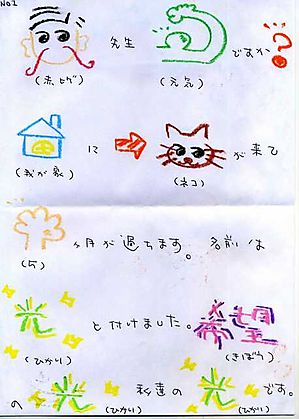 NO1
先生 ですか?
(赤ヒゲ) (元気)
に が来て
(我が家) (ネコ)
ヶ月が過ちます。名前は
(5)
光 と付けました。希望
(ひかり) (きぼう)
の光 私達の光です。
(ひかり) (ひかり)